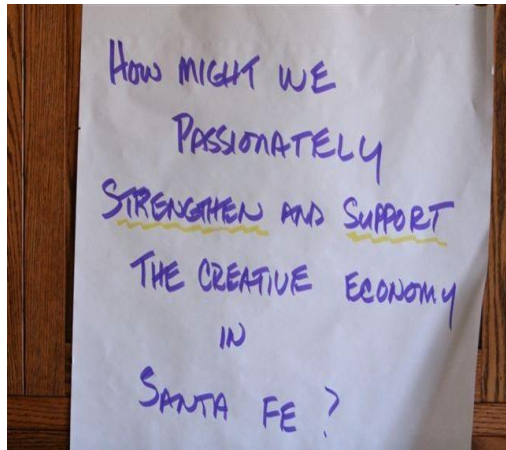 HOW MIGHT WE
PASSIONATELY
STRENGTHEN AND SUPPORT
THE CREATIVE ECONOMY
IN
SANTA FE?